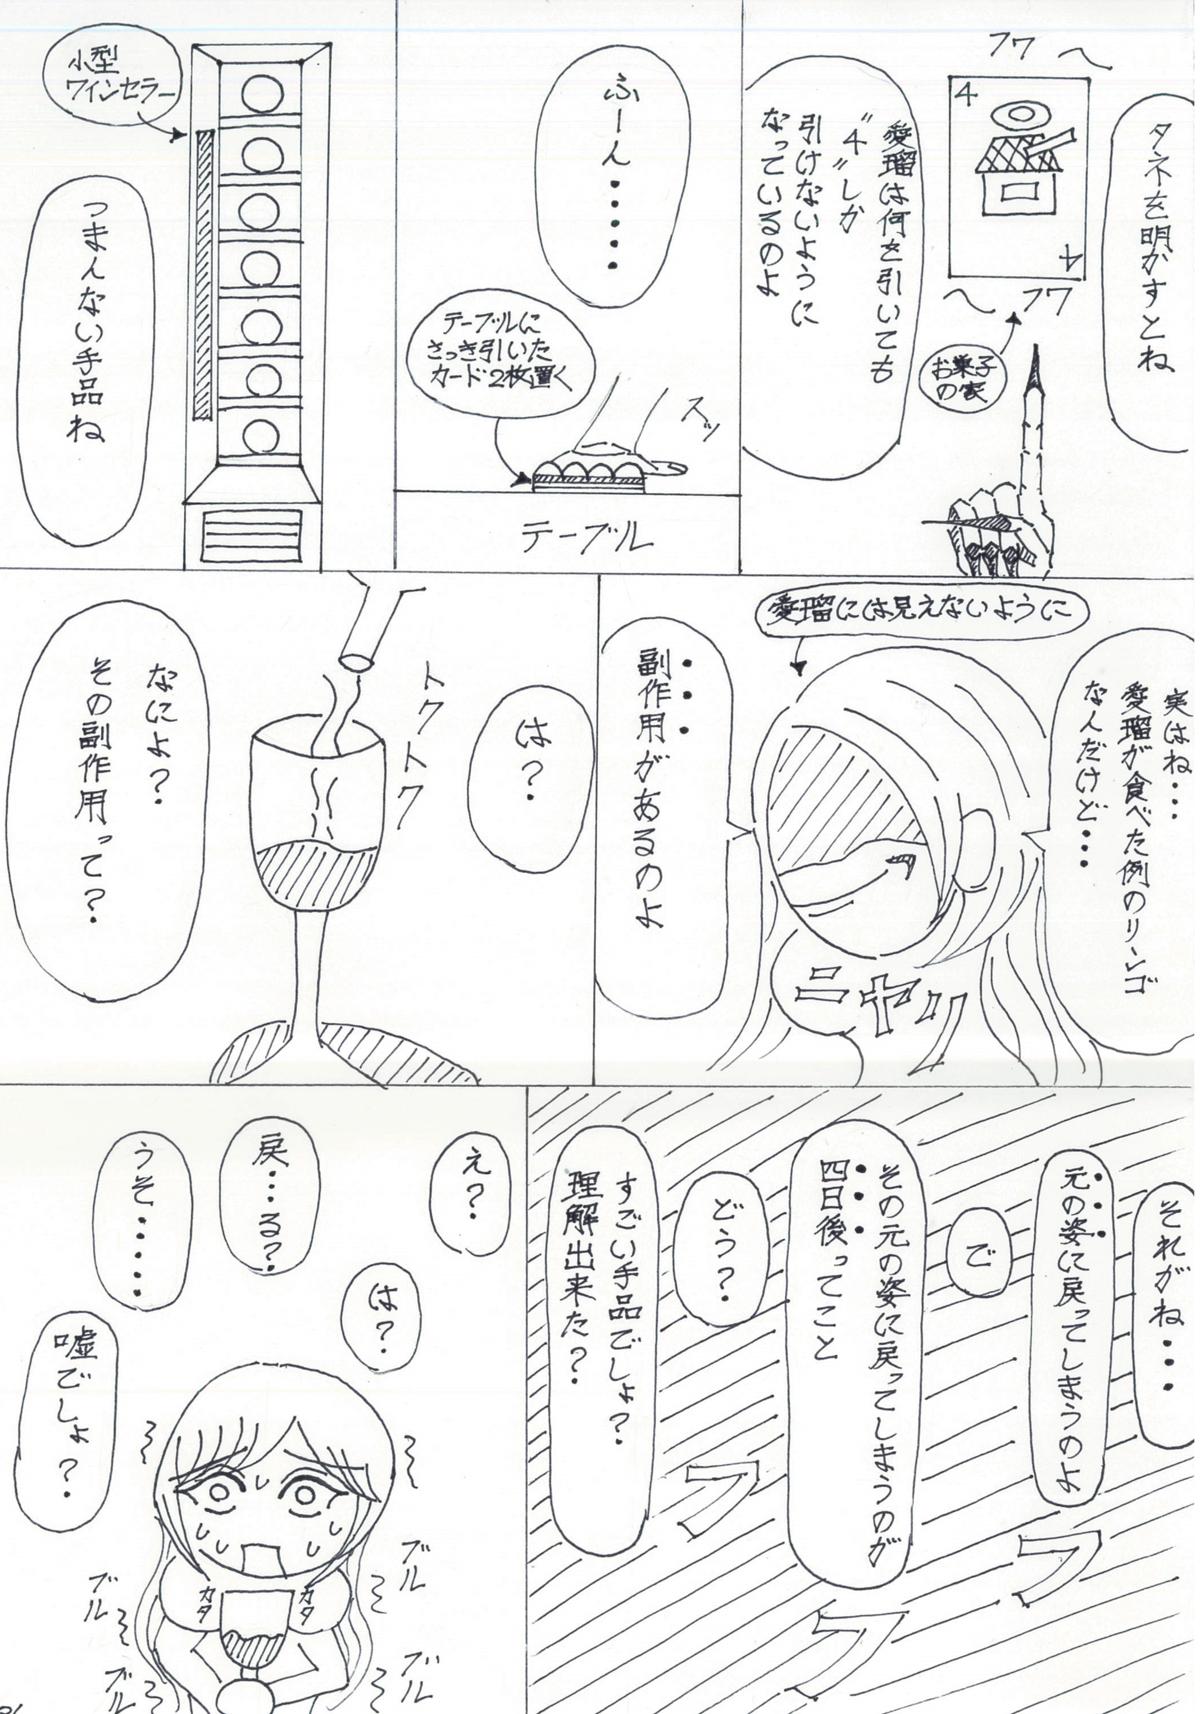 タネを明かすとね
フワ〜
4
4
〜フワ
お菓子
の家
愛瑠は何を引いても
"4"しか
引けないように
なっているのよ
ふーん・・・・・・
テーブルに
さっき引いた
カード2枚置く
スッ
テーブル
小型
ワインセラー
つまんない手品ね
実はね・・・
愛瑠が食べた例のリンゴ
なんだけど・・・
愛瑠には見えないように
副作用があるのよ
ニヤリ
は?
トクトク
なによ?
その副作用って?
それがね・・・
元の姿に戻ってしまうのよ
で
その元の姿に戻ってしまうのが
四日後ってこと
どう?
すごい手品でしょ?
理解出来た?
フフフ
え?
は?
戻・・・る?
うそ・・・・・
嘘でしょ?
カタ
カタ
ブル
ブル
ブル
ブル